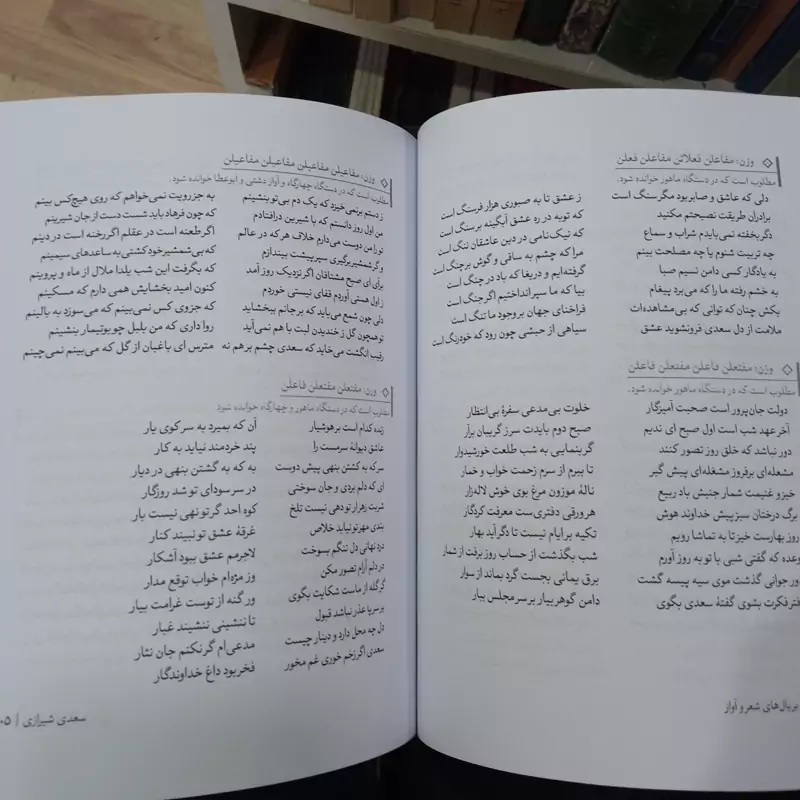 وزن: مفاعلن فعلاتن مفاعلن فعلن
مطلوب است که در دستگاه ماهور خوانده شود.
دلی که عاشق و صابر بود مگر سنگ است ز عشق تا به صبوری هزار فرسنگ است
برادران طریقت نصیحتم مکنید که توبه در ره عشق آبگینه بر سنگ است
دگر بخفته نمی‌بایدم شراب و سماع که نیک‌نامی در دین عاشقان ننگ است
چه تربیت شنوم یا چه مصلحت بینم مرا که چشم به ساقی و گوش بر چنگ است
به یادگار کسی دامن نسیم صبا گرفته‌ایم و دریغا که باد در چنگ است
به خشم رفته ما را که می‌برد پیغام بیا که ما سپر انداختیم اگر جنگ است
بکش چنان که توانی که بی‌مشاهده‌ات فراخنای جهان بر وجود ما تنگ است
ملامت از دل سعدی فرونشوید عشق سیاهی از حبشی چون رود که خودرنگ است
وزن: مفتعلن فاعلن مفتعلن فاعلن
مطلوب است که در دستگاه ماهور خوانده شود.
دولت جان‌پرور است صحبت آمیزگار خلوت بی‌مدعی سفرهٔ بی‌انتظار
آخر عهد شب است اول صبح ای ندیم صبح دوم بایدت سر ز گریبان برآر
دور نباشد که خلق روز تصور کنند گر بنمایی به شب طلعت خورشیدوار
مشعله‌ای برفروز مشغله‌ای پیش گیر تا ببرم از سرم زحمت خواب و خمار
خیز و غنیمت شمار جنبش باد ربیع نالهٔ موزون مرغ بوی خوش لاله‌زار
برگ درختان سبز پیش خداوند هوش هر ورقی دفتری‌ست معرفت کردگار
روز بهارست خیز تا به تماشا رویم تکیه بر ایام نیست تا دگر آید بهار
وعده که گفتی شبی با تو به روز آورم شب بگذشت از حساب روز برفت از شمار
دور جوانی گذشت موی سیه پیسه گشت برق یمانی بجست گرد بماند از سوار
دفتر فکرت بشوی گفتهٔ سعدی بگوی دامن گوهر بیار بر سر مجلس ببار
بر بال‌های شعر و آواز
وزن: مفاعیلن مفاعیلن مفاعیلن مفاعیلن
مطلوب است که در دستگاه چهارگاه و آواز دشتی و ابوعطا خوانده شود.
ز دستم برنمی‌خیزد که یک دم بی‌تو بنشینم به جز رویت نمی‌خواهم که روی هیچ‌کس بینم
من اول روز دانستم که با شیرین درافتادم که چون فرهاد باید شست دست از جان شیرینم
تو را من دوست می‌دارم خلاف هر که در عالم اگر طعنه است در عقلم اگر رخنه است در دینم
و گر شمشیر برگیری سپر پیشت بیندازم که بی‌شمشیر خود کشتی به ساعدهای سیمینم
برآی ای صبح مشتاقان اگر نزدیک روز آمد که بگرفت این شب یلدا ملال از ماه و پروینم
ز اول هستی آوردم قفای نیستی خوردم کنون امید بخشایش همی دارم که مسکینم
دلی چون شمع می‌باید که بر جانم ببخشاید که جز وی کس نمی‌بینم که می‌سوزد به بالینم
تو همچون گل ز خندیدن لبت با هم نمی‌آید روا داری که من بلبل چو بوتیمار بنشینم
رقیب انگشت می‌خاید که سعدی چشم بر هم نه مترس ای باغبان از گل که می‌بینم نمی‌چینم
وزن: مفتعلن مفتعلن فاعلن
مطلوب است که در دستگاه ماهور و چهارگاه خوانده شود
زنده کدام است بر هوشیار آن که بمیرد به سر کوی یار
عاشق دیوانهٔ سرمست را پند خردمند نیاید به کار
سر که به کشتن بنهی پیش دوست به که به گشتن بنهی در دیار
ای که دلم بردی و جان سوختی در سر سودای تو شد روزگار
شربت زهر ار تو دهی نیست تلخ کوه احد گر تو نهی نیست بار
بندی مهر تو نیابد خلاص غرقهٔ عشق تو نبیند کنار
درد نهانی دل تنگم بسوخت لاجرمم عشق ببود آشکار
در دلم آرام تصور مکن وز مژه‌ام خواب توقع مدار
گر گله از ماست شکایت بگوی ور گنه از توست غرامت بیار
بر سر پا عذر نباشد قبول تا ننشینی ننشیند غبار
دل چه محل دارد و دینار چیست مدعی‌ام گر نکنم جان نثار
سعدی اگر زخم خوری غم مخور فخر بود داغ خداوندگار
سعدی شیرازی |